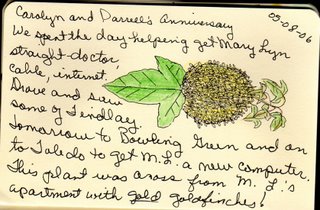 Carolyn and Darrell's Anniversary
05-08-06
We spent the day helping get Mary Lyn
straight-doctor,
cable, internet.
Drove and saw
some of Findlay.
tomorrow to Bowling Green and on
to Toledo to get M.L. a new computer.
This plant was cross from M. L.'s
apartment with gold goldfinches.